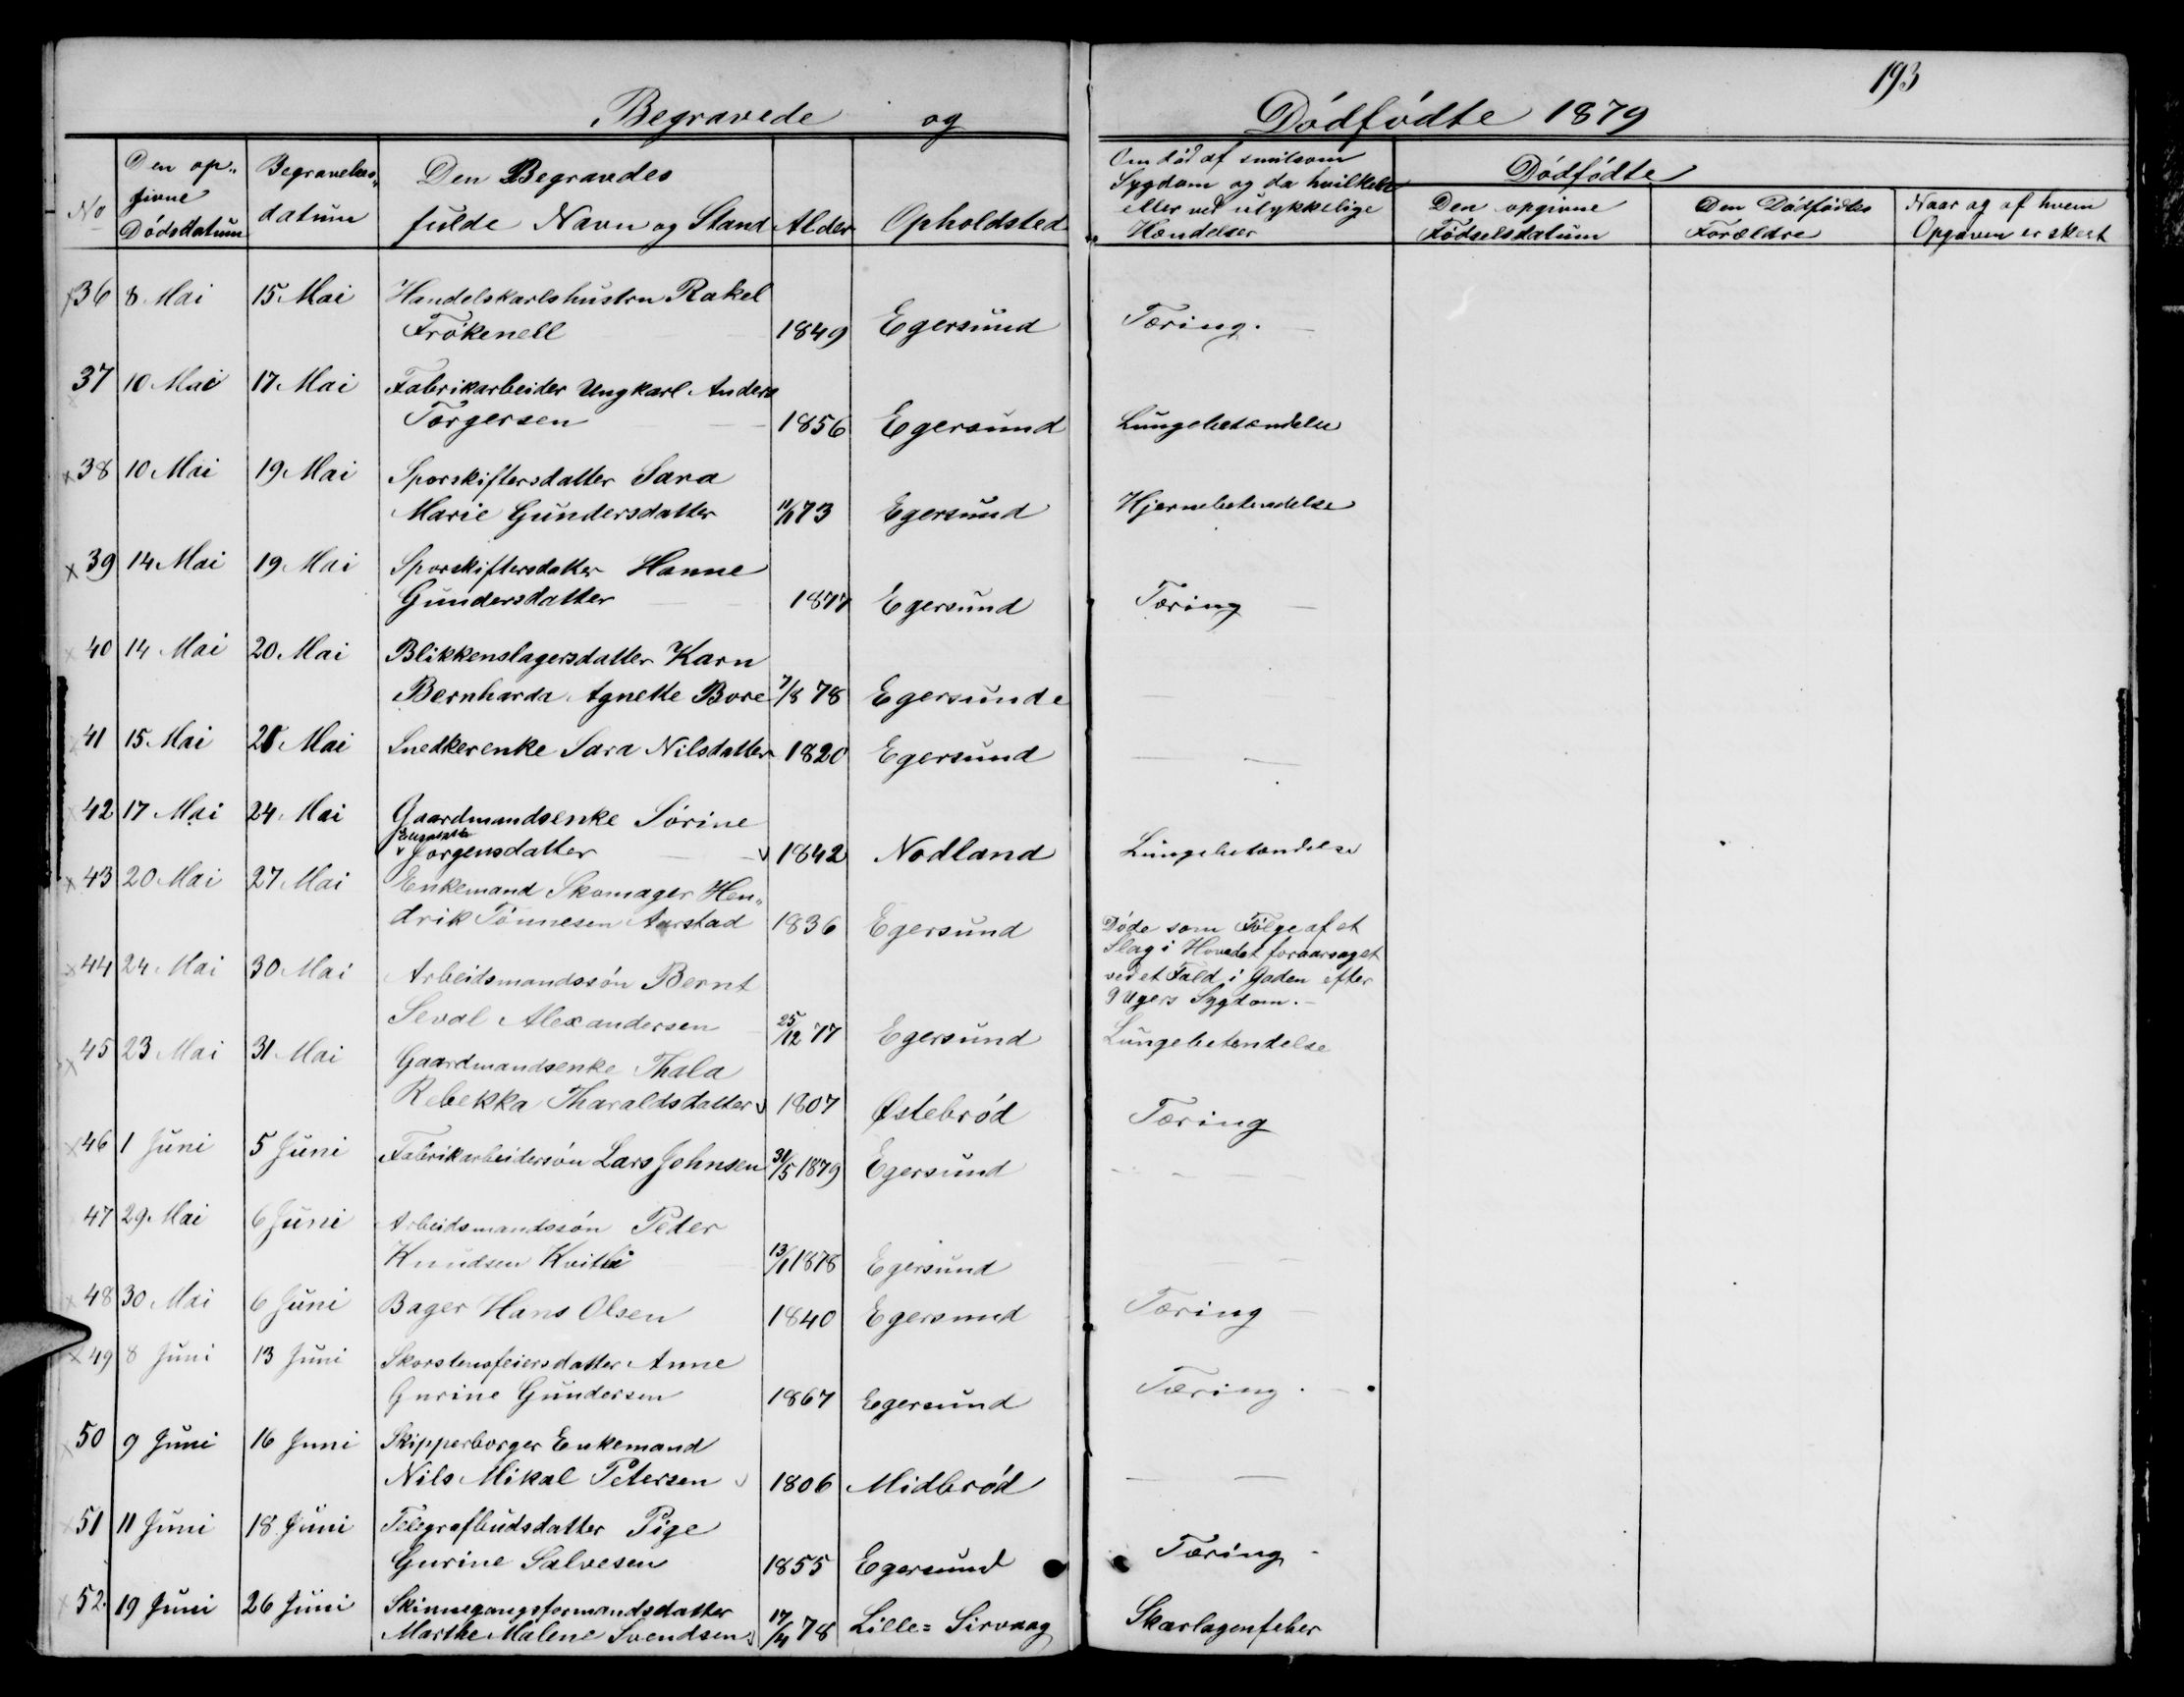 193
Begravede og Dödfödte 1879
No
Den op„
givne
Dödsdatum
Begravelses„
datum
Den Begravdes
fulde Navn og Stand
Alder
Opholdsted
Om död af smitsom
Sygdom og da hvilken
eller ved ulykkelige
Hændelser
Dödfödte
Den opgivne
Födselsdatum
Den Dödfödtes
Forældre
Naar og af hvem
Opgaven er skeet
36 8 Mai 15 Mai Handelskarlshustru Rakel
Frökenell 1849 Egersund Tæring.
37 10 Mai 17 Mai Fabrikarbeider Ungkarl Anders
Torgersen 1856 Egersund Lungebetændelse
x 38 10 Mai 19 Mai Sporskiftersdatter Sara
Marie Gundersdatter 11/1 73 Egersund Hjernebetendelse
x 39 14 Mai 19 Mai Sporskiftersdatter Hanne
Gundersdatter 1877 Egersund Tæring
x 40 14 Mai 20 Mai Blikkenslagersdatter Karn
Bernharda Agnette Bore 7/8 78 Egersunde
41 15 Mai 21 Mai Snedkerenke Sara Nilsdatter 1820 Egersund
x 42 17 Mai 24 Mai Gaardmandsenke Sörine
Jorgensdatter 1842 Nodland Lungebetændelse
x 43 20 Mai 27 Mai Enkemand Skomager Hen„
drik Tönnesen Aarstad 1836 Egersund Döde som Fölge af et
Slag i Hovedet foraarsaget
ved et Fald i Gaden efter
9 Ugers Sygdom.
x 44 24 Mai 30 Mai Arbeidsmandssön Bernt
Seval Alexandersen 25/12 77 Egersund Lungebetendelse
x 45 23 Mai 31 Mai Gaardmandsenke Thala
Rebekka Tharaldsdatter 1807 Østebröd Tæring
x 46 1 Juni 5 Juni Fabrikarbeidersön Lars Johnsen 31/5 1879 Egersund
47 29 Mai 6 Juni Arbeidsmandssön Peder
Knudsen 13/1 1878 Egersund
x 48 30 Mai 6 Juni Bager Hans Olsen 1840 Egersund Tæring
x 49 8 Juni 13 Juni Skorstensfeiersdatter Anne
Gurine Gundersen 1867 Egersund Tæring.
x 50 9 Juni 16 Juni Skipperborger Enkemand
Nils Mikal Petersen 1806 Midbröd
x 51 11 Juni 18 Juni Telegrafbudsdatter Pige
Gurine Salvesen 1855 Egersund Tæring
x 52. 19 Juni 26 Juni Skinnegangsformandsdatter
Marthe Malene Svendsen 17/4 78 Lille= Sirvaag Skarlagenfeber